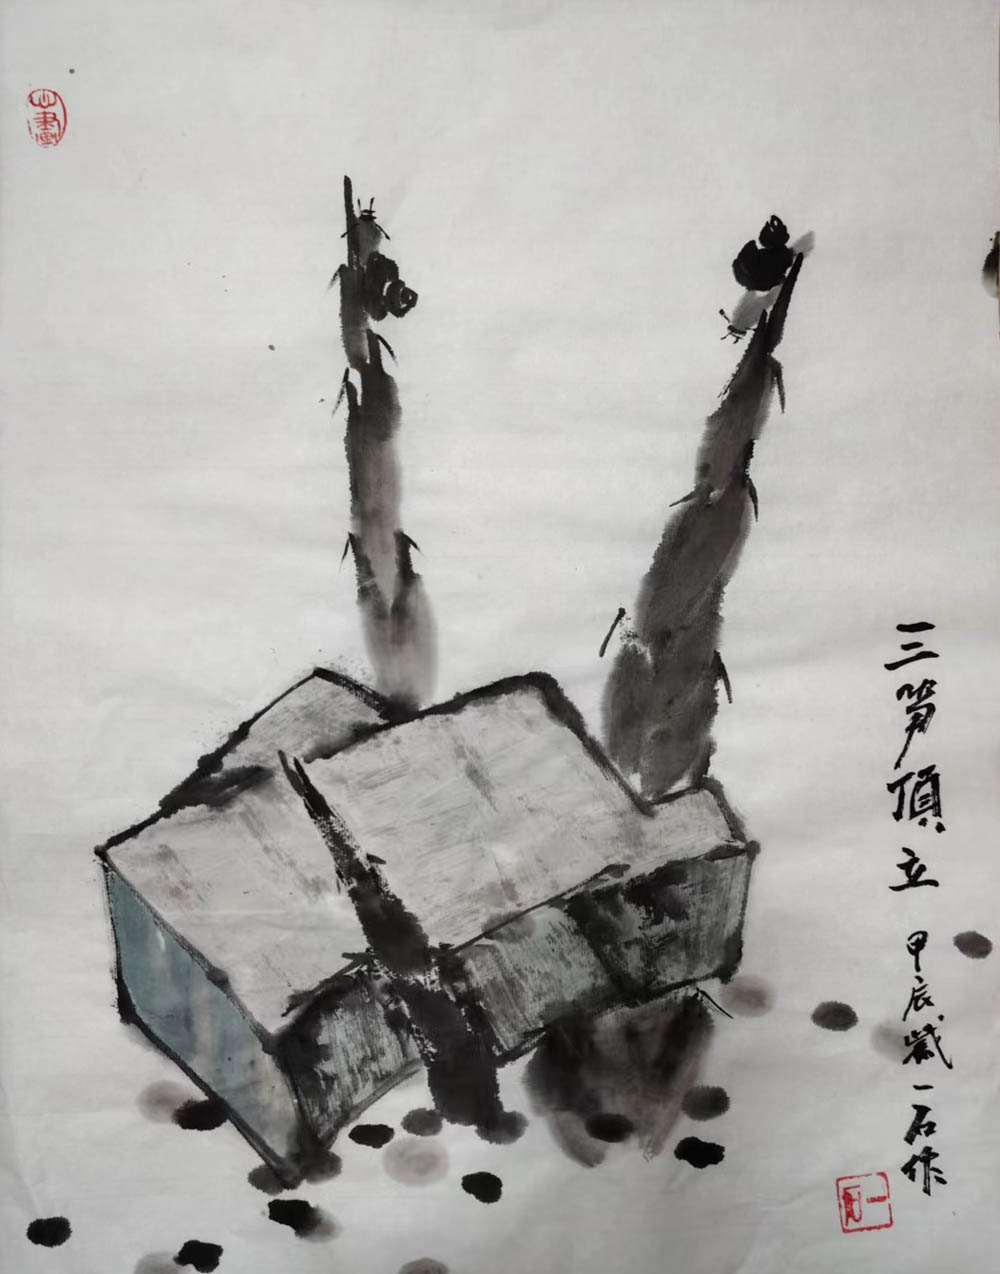 三笋頂立
甲辰歲一石作
一石